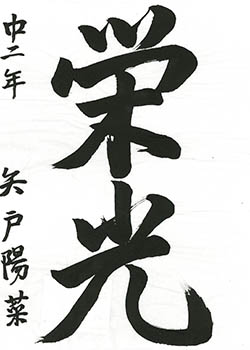 栄光
中二年 矢戸陽菜